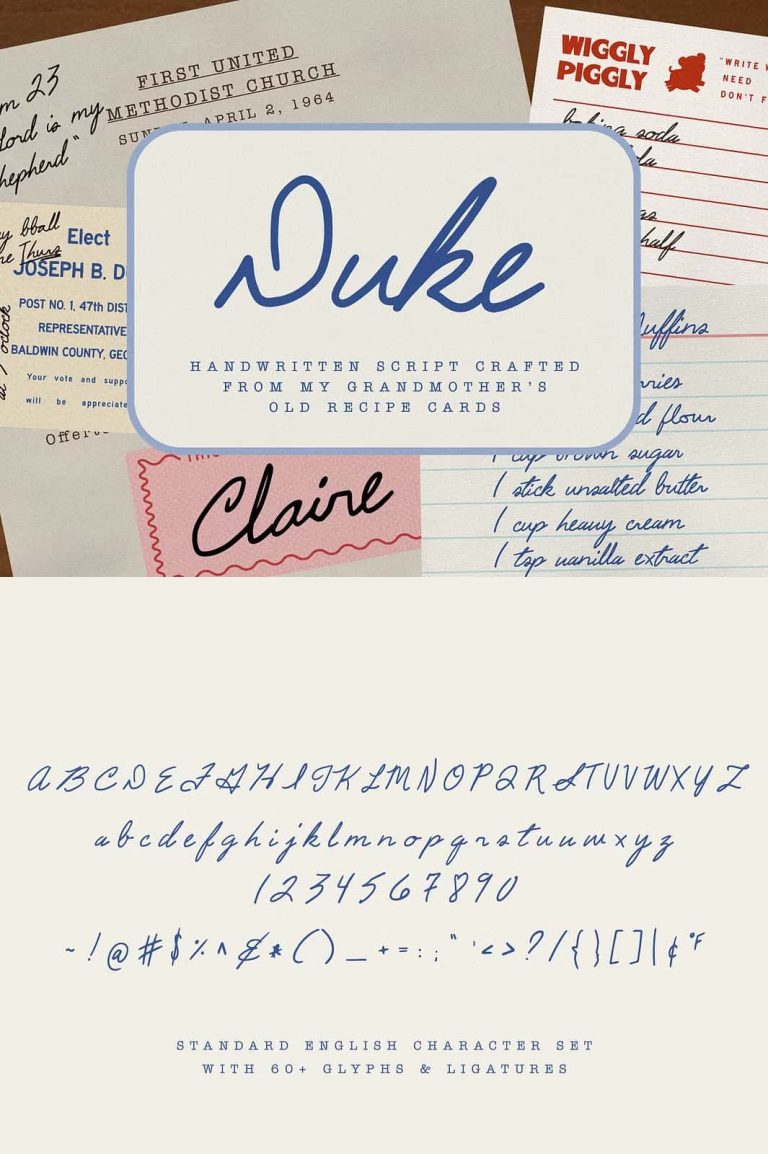 m 23
Lord is my
hepherd"
FIRST UNITED
METHODIST CHURCH
APRIL 2, 1964
WIGGLY
PIGGLY
"WRITE
NEED
DON'T F
baking soda
half
bball
Thurs
Elect
JOSEPH B. D
POST NO. 1, 47th DIST
REPRESENTATIVE
BALDWIN COUNTY, GEO
Your vote and suppo
will be appreciate
o'clock
Duke
HANDWRITTEN SCRIPT CRAFTED
FROM MY GRANDMOTHER'S
OLD RECIPE CARDS
uffins
rries
d flour
1 cup brown sugar
1 stick unsalted butter
1 cup heavy cream
1 tsp vanilla extract
Claire
A B C D E F G H I J K L M N O P Q R S T U V W X Y Z
a b c d e f g h i j k l m n o p q r s t u v w x y z
1 2 3 4 5 6 7 8 9 0
~ ! @ # $ % ^ & * ( ) _ + = : ; " ' < > ? / { } [ ] | ¢ °F
STANDARD ENGLISH CHARACTER SET
WITH 60+ GLYPHS & LIGATURES